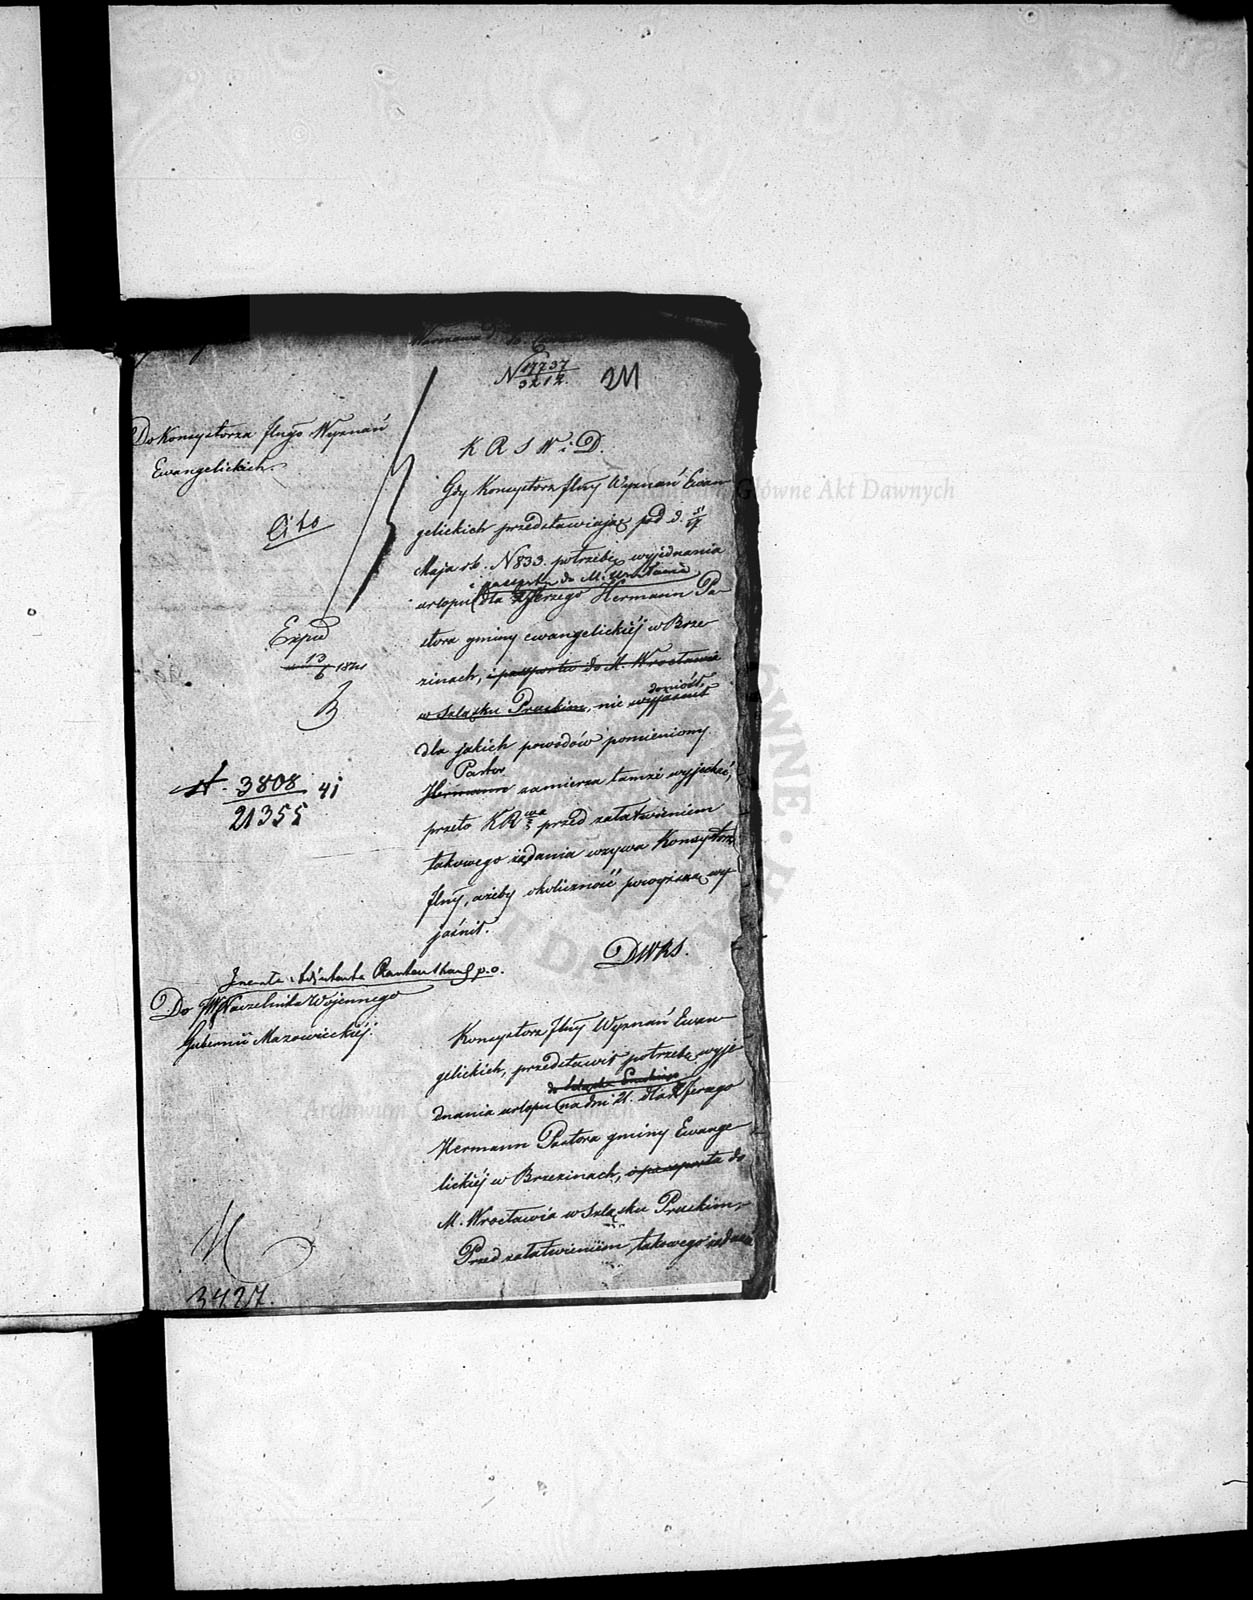 Warszawa d. 16 Czerwca
N 17737
3212.
211
Do Konsystorza Jlnego Wyznań
Ewangelickich.
Cito
Exped
13/6 1841
N. 3808
21355 41
K R S W i D.
Gdy Konsystorz Jlny Wyznań Ewan-
gelickich przedstawiając pod d.
Maja rb. N 833. potrzebę wyjednania
i paszportu do M. Wrocławia
urlopu dla Xiędza Jerzego Hermann Pa-
stora gminy ewangelickiéj w Brze-
zinach, i paszportu do M. Wrocławia
w Szląsku Pruskim, nie wyjaśnił
doniósł,
dla jakich powodów pomieniony
Pastor
Hermann zamierza tamże wyjechać,
przeto KR przed załatwieniem
takowego żądania wzywa Konsystorz
Jlny, ażeby okoliczność powyższą wy-
jaśnił.
DWRS.
Jnerała Adjutanta p.o.
Do JW Naczelnika Wojennego
Gubernii Mazowieckiéj.
Konsystorz Jlny Wyznań Ewan-
gelickich, przedstawił potrzebę wyje-
do Szląska Pruskiego
dnania urlopu na dni 21. dla X Jerzego
Hermann Pastora gminy Ewange-
lickiéj w Brzezinach, i paszportu do
M. Wrocławia w Szląsku Pruskim,
Przed załatwieniem takowego żądania
3427.
Archiwum Główne Akt Dawnych